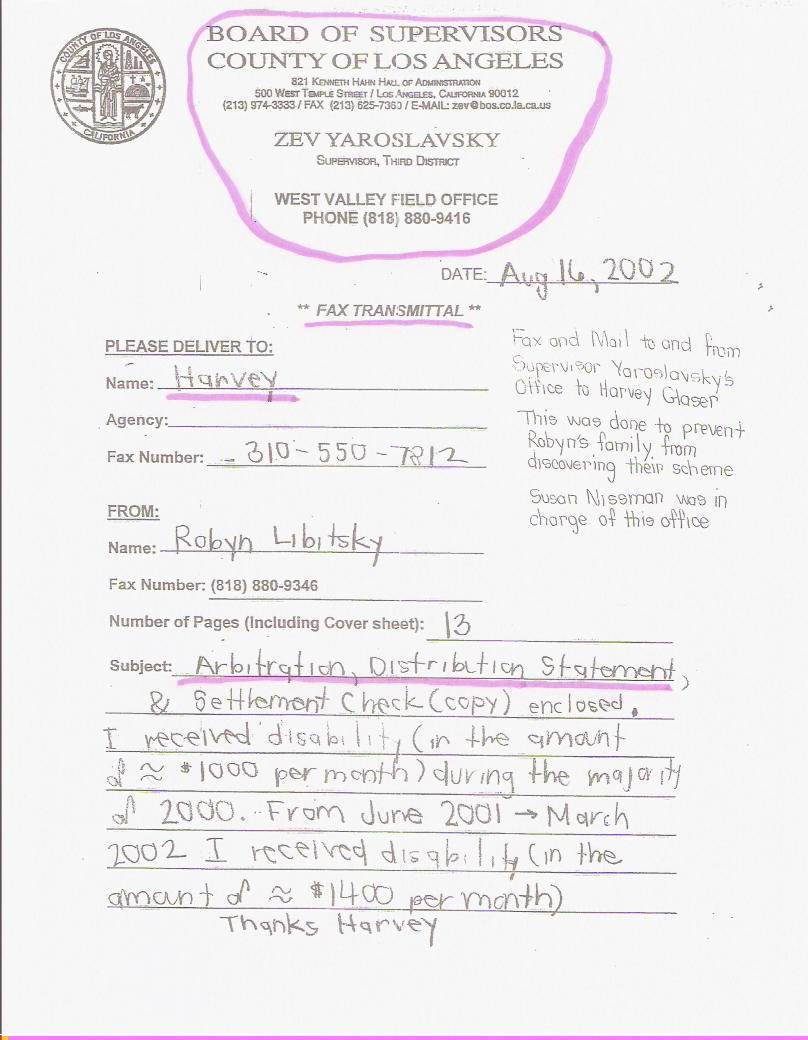 COUNTY OF LOS ANGELES
CALIFORNIA
BOARD OF SUPERVISORS
COUNTY OF LOS ANGELES
821 KENNETH HAHN HALL OF ADMINISTRATION
500 WEST TEMPLE STREET / LOS ANGELES, CALIFORNIA 90012
(213) 974-3333 / FAX (213) 625-7360 / E-MAIL: zev@bos.co.la.ca.us
ZEV YAROSLAVSKY
SUPERVISOR, THIRD DISTRICT
WEST VALLEY FIELD OFFICE
PHONE (818) 880-9416
DATE: Aug 16, 2002
** FAX TRANSMITTAL **
PLEASE DELIVER TO:
Name: Harvey
Agency:
Fax Number: 310-550-7812
Fax and Mail to and from
Supervisor Yaroslavsky's
Office to Harvey Glaser
This was done to prevent
Robyn's family from
discovering their scheme
Susan Nissman was in
charge of this office
FROM:
Name: Robyn Libitsky
Fax Number: (818) 880-9346
Number of Pages (Including Cover sheet): 13
Subject: Arbitration, Distribution Statement,
& Settlement Check (copy) enclosed.
I received disability (in the amount
of ≈ $1000 per month) during the majority
of 2000. From June 2001 → March
2002 I received disability (in the
amount of ≈ $1400 per month)
Thanks Harvey